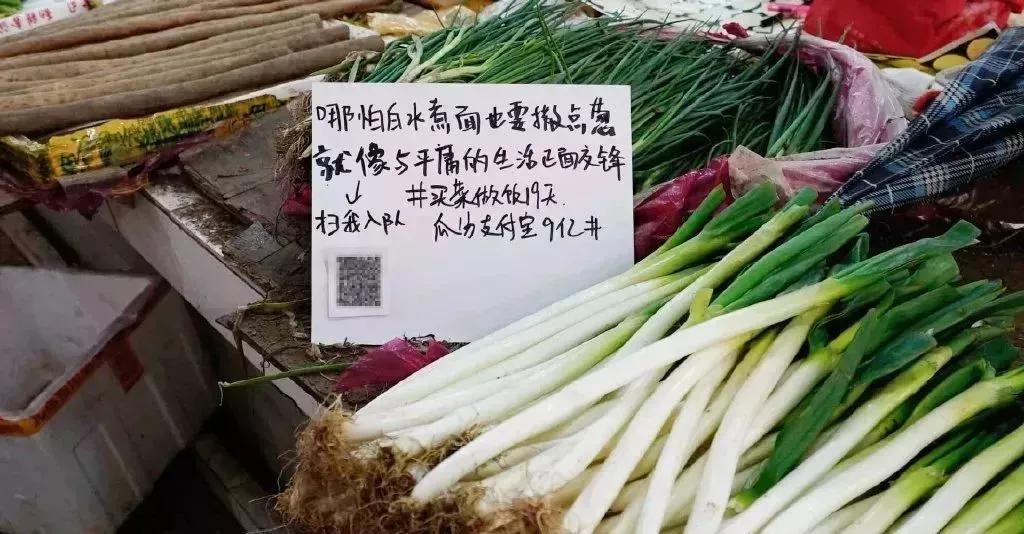 哪怕白水煮面也要撒点葱
就像与平庸的生活正面交锋
#买菜做饭19天
扫我入队 瓜分支付宝9亿#